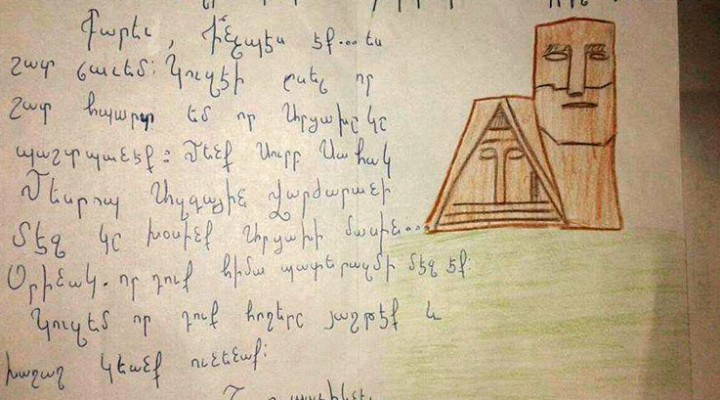 Բարեւ, Ինչպէս էք... ես
շատ լաւեմ: Կուզէի ըսել որ
շատ հպարտ եմ որ Արցախը կը
պաշտպանէք: Մենք Սուրբ Սահակ
Մեսրոպ Ազգային վարժարանի
մէջ կը խօսինք Արցախի մասին...
Օրինակ. որ դուք հիմա պատերազմի մէջ էք:
Կուզեմ որ դուք հողերը յաղթէք և
խաղաղ կեանք ունենաք: